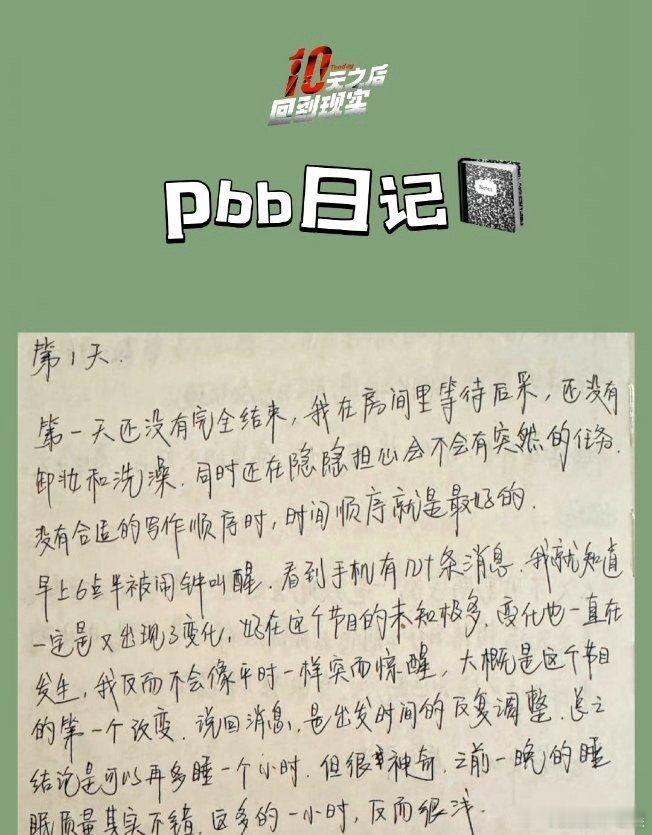 10天之后
Tenday
回到现实
pbb日记
Notes
第1天.
第一天还没有完全结束，我在房间里等待后采，还没有
卸妆和洗澡.同时还在隐隐担心会不会有突然的任务.
没有合适的写作顺序时，时间顺序就是最好的.
早上6点半被闹钟叫醒.看到手机有10+条消息.我就知道
一定是又出现了变化，好在这个节目的未知极多.变化也一直在
发生，我反而不会像平时一样突而惊醒，大概是这个节目
的第一个改变.说回消息，是出发时间的反复调整.总之
结论是可以再多睡一个小时.但很神奇.之前一晚的睡
眠质量其实不错.这多的一小时，反而很浅.